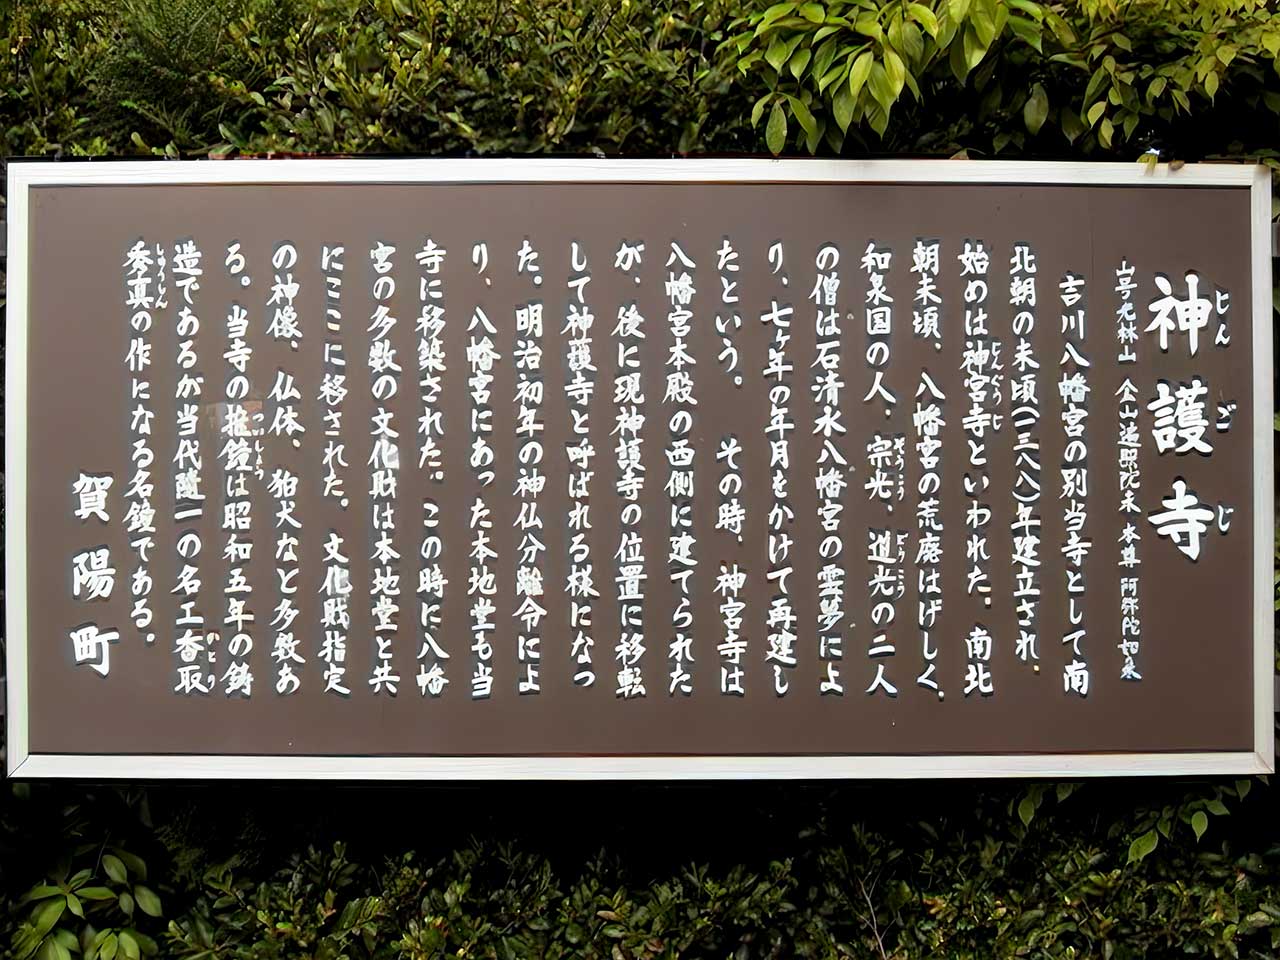 神護寺
山号 光林山 金山遍照院末 本尊 阿弥陀如来
吉川八幡宮の別当寺として南
北朝の末頃(一三八八)年建立され、
始めは神宮寺といわれた。南北
朝末頃、八幡宮の荒廃はげしく、
和泉国の人、宗光、道光の二人
の僧は石清水八幡宮の霊夢によ
り、七ヶ年の年月をかけて再建し
たという。その時、神宮寺は
八幡宮本殿の西側に建てられた
が、後に現神護寺の位置に移転
して神護寺と呼ばれる様になっ
た。明治初年の神仏分離令によ
り、八幡宮にあった本地堂も当
寺に移築された。この時に八幡
宮の多数の文化財は本地堂と共
にここに移された。文化財指定
の神像、仏体、狛犬など多数あ
る。当寺の推鐘は昭和五年の鋳
造であるが当代随一の名工香取
秀真の作になる名鐘である。
賀陽町
じんごじ
じんぐうじ
そうこう
どうこう
かとり